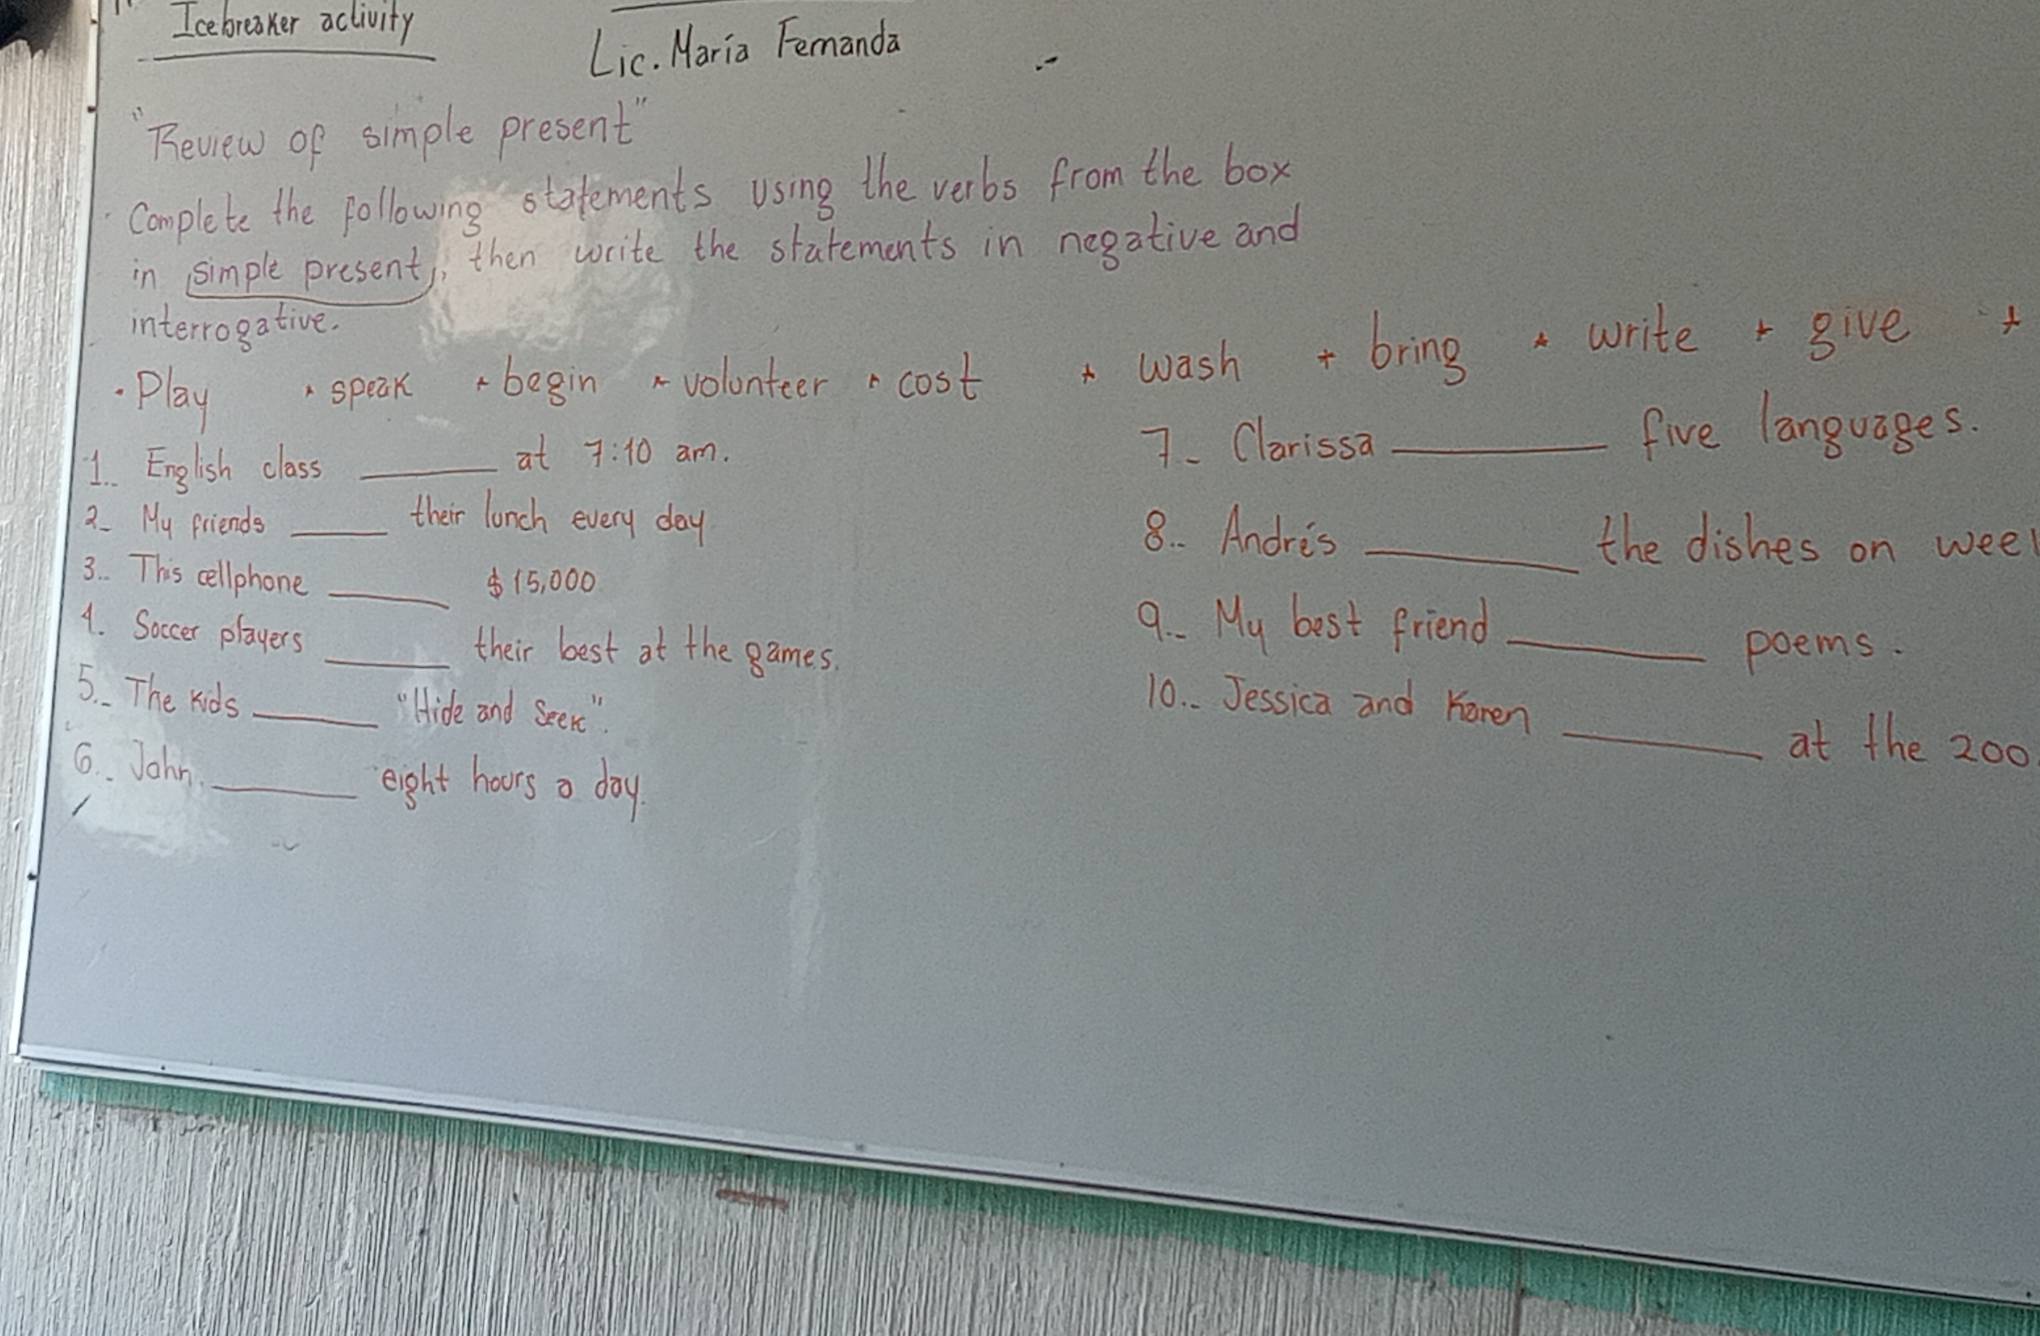 Icebreaker activity
Lic. María Fernanda
"Review of simple present"
Complete the following statements using the verbs from the box
in simple present, then write the statements in negative and
interrogative.
· Play * speak * begin * volunteer * cost * wash * bring * write * give *
1.. English class ______ at 7:10 am.
2.- My friends ______ their lunch every day
3.. This cellphone ______ $15,000
4. Soccer players ______ their best at the games.
5.- The kids ______ "Hide and Seek".
6.. John ______ eight hours a day.
7.- Clarissa ______ five languages.
8.. Andrés ______ the dishes on
9.- My best friend ______ poems.
10.. Jessica and Karen ______ at the zoo